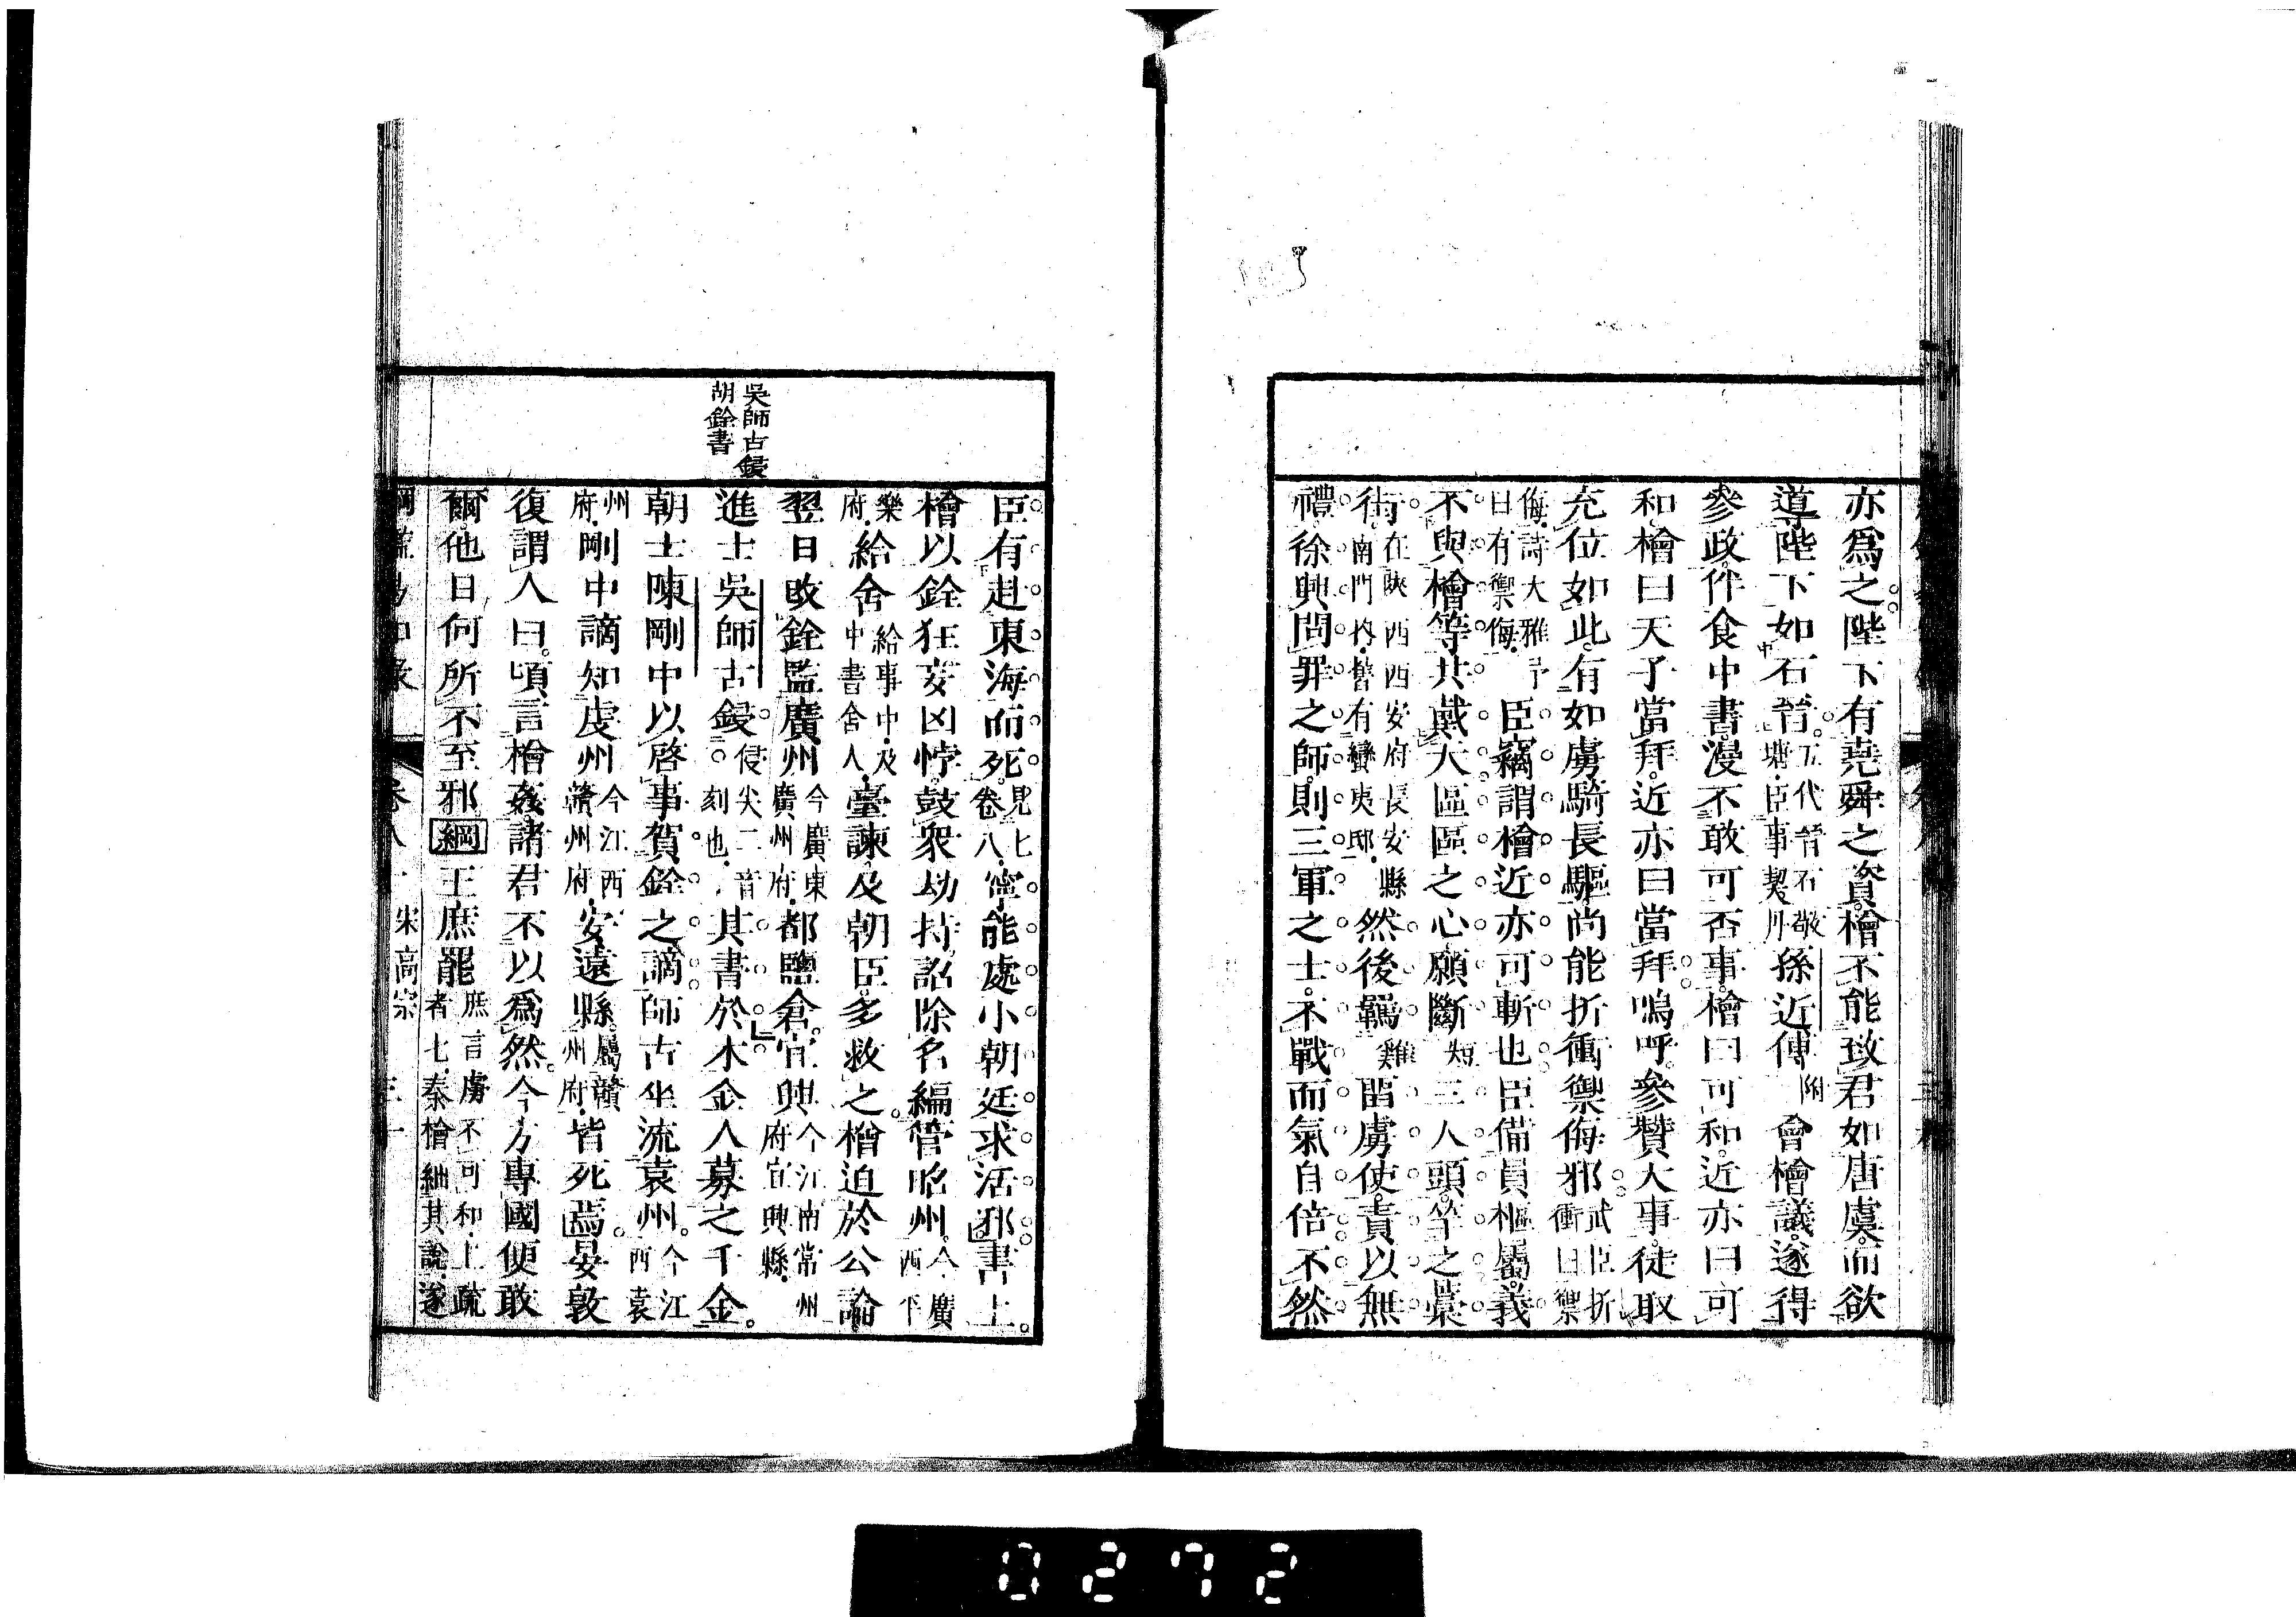 亦爲之陛下有堯舜之資檜不能致君如唐虞而欲
導陛下如石晉五代晉石敬瑭臣事契丹孫近傅附會檜議遂得
參政伴食中書漫不敢可否事檜曰可和近亦曰可
和檜曰天子當拜近亦曰當拜嗚呼參贊大事徒取
充位如此有如虜騎長驅尚能折衝禦侮邪武臣折衝曰禦
侮詩大雅予曰有禦侮臣竊謂檜近亦可斬也臣備員樞屬義
不與檜等共戴天區區之心願斷短三人頭竿之藁
街在陝西西安府長安縣南門內舊有蠻夷邸然後羈雞留虜使責以無
禮徐興問罪之師則三軍之士不戰而氣自倍不然
吳師古鋟
胡銓書
臣有赴東海而死見七卷八寧能處小朝廷求活邪書上
檜以銓狂妄凶悖鼓衆劫持詔除名編管昭州今廣西平
樂府給舍給事中及中書舍人臺諫及朝臣多救之檜迫於公論
翌日改銓監廣州今廣東廣州府都鹽倉宜興今江南常州府宜興縣
進士吳師古鋟侵尖二音刻也其書於木金人募之千金
朝士陳剛中以啓事賀銓之謫師古坐流袁州今江西袁
州府剛中謫知虔州今江西贛州府安遠縣屬贛州府皆死焉晏敦
復謂人曰頃言檜姦諸君不以爲然今方專國便敢
爾他日何所不至邪綱王庶罷庶言虜不可和上疏者七秦檜絀其說遂
卷八 宋高宗